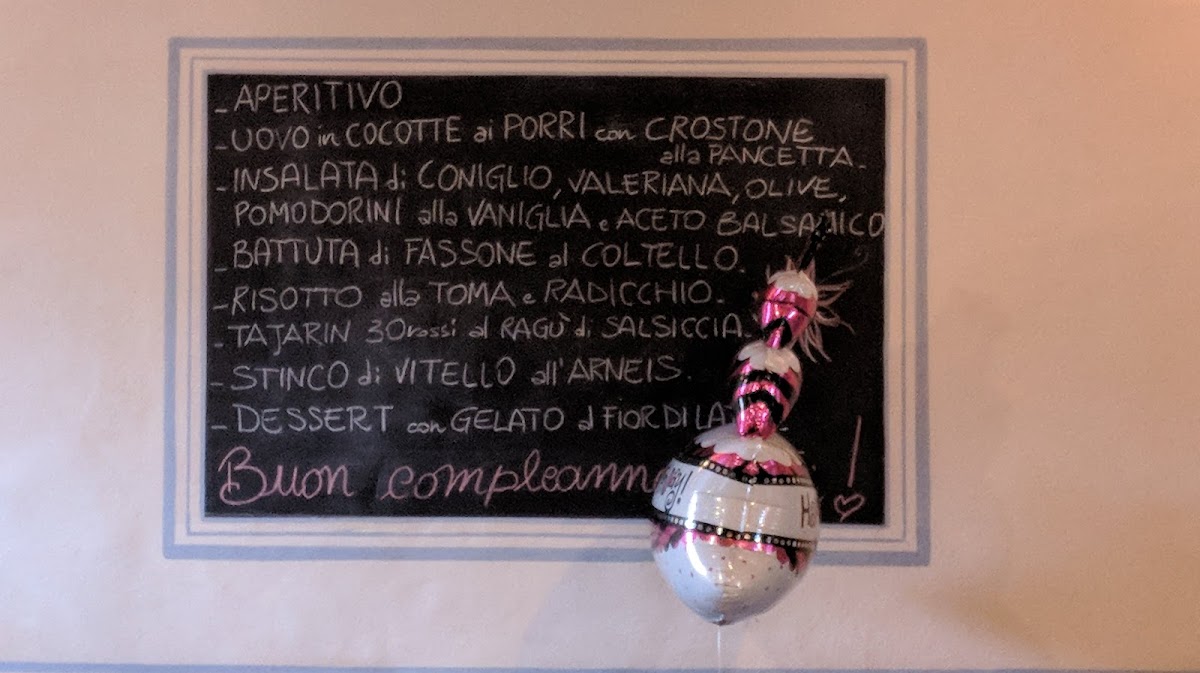 - APERITIVO
- UOVO in COCOTTE ai PORRI con CROSTONE
alla PANCETTA.
- INSALATA di CONIGLIO, VALERIANA, OLIVE,
POMODORINI alla VANIGLIA e ACETO BALSAMICO
- BATTUTA di FASSONE al COLTELLO.
- RISOTTO alla TOMA e RADICCHIO.
- TAJARIN 30rossi al RAGÙ di SALSICCIA.
- STINCO di VITELLO all'ARNEIS.
- DESSERT con GELATO al FIOR DI LA
Buon compleann !